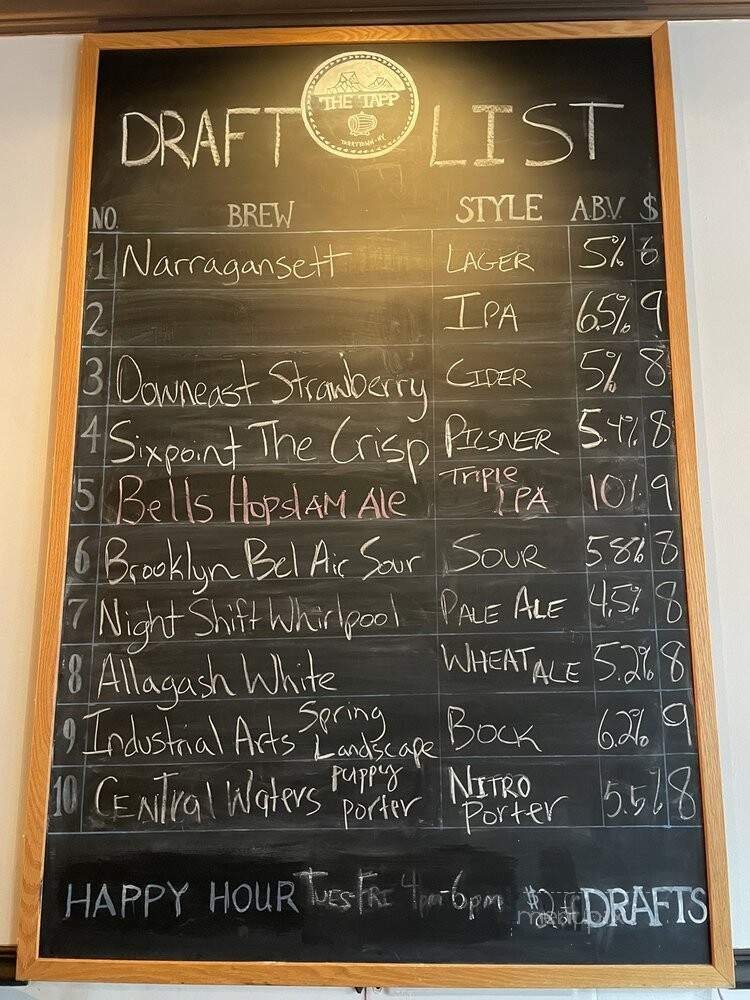 THE TAPP
TARRYTOWN, NY
DRAFT LIST
NO. BREW STYLE A.B.V. $
1 Narragansett LAGER 5% 6
2 IPA 6.5% 9
3 Downeast Strawberry CIDER 5% 8
4 Sixpoint The Crisp PILSNER 5.4% 8
5 Bells HopslAM Ale Triple IPA 10% 9
6 Brooklyn Bel Air Sour SOUR 5.8% 8
7 Night Shift Whirlpool PALE ALE 4.5% 8
8 Allagash White WHEAT ALE 5.2% 8
9 Industrial Arts Spring Landscape BOCK 6.2% 9
10 CENTRal Waters puppy porter NITRO Porter 5.5% 8
HAPPY HOUR TUES-FRI 4pm-6pm $2 off DRAFTS